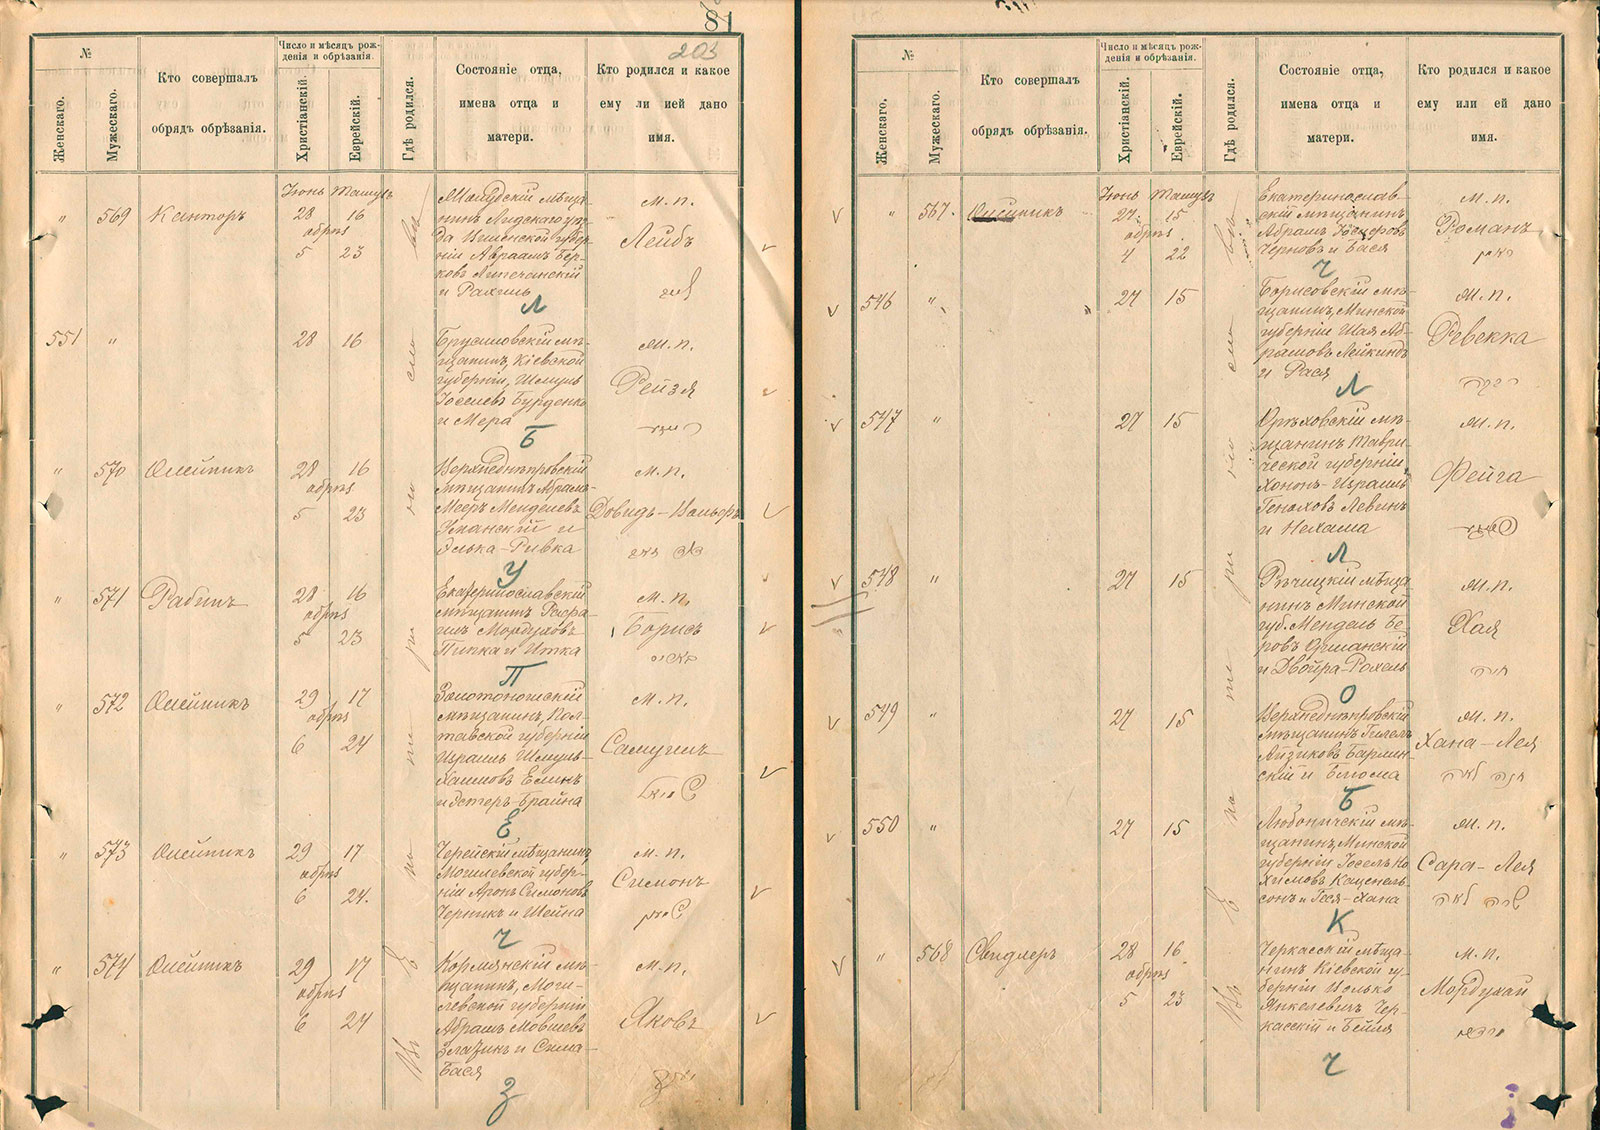 81
203
№
Женскаго.
Мужескаго.
Кто совершалъ
обрядъ обрѣзанія.
Число и мѣсяцъ рож-
денія и обрѣзанія.
Христіанскій.
Еврейскій.
Гдѣ родился.
Состояніе отца,
имена отца и
матери.
Кто родился и какое
ему ли ией дано
имя.
Въ Екатеринославѣ
Іюнь Тамузъ
" 569 Канторъ 28 16
обрѣз
5 23
Мѣща-
нинъ Лидскаго уѣз-
да Виленской губер-
ніи Авраамъ Бер-
ковъ Липчанскій
и Рахиль
м. п.
Лейбъ
Л
551 " 28 16
Брусиловскій мѣ-
щанинъ, Кіевской
губерніи, Шмуль
Іоселевъ Бурденко
и Мера
м. п.
Рейзя
Б
" 570 Олейникъ 28 16
обрѣз
5 23
Верхнеднѣпровскій
мѣщанинъ Абрамъ-
Мееръ Менделевъ
Уманскій и
Элька-Ривка
м. п.
Довидъ-
У
" 571 Рабинъ 28 16
обрѣз
5 23
Екатеринославскій
мѣщанинъ Рафа-
илъ Мордуховъ
Пинка и Итка
м. п.
Борисъ
П
" 572 Олейникъ 29 17
обрѣз
6 24
Золотоношскій
мѣщанинъ, Пол-
тавской губерніи
Израиль Шмуль-
Хаимовъ Елинъ
и Эстеръ-Брайна
м. п.
Самуилъ
Е
" 573 Олейникъ 29 17
обрѣз
6 24.
Черейскій мѣщанинъ,
Могилевской губер-
ніи Аронъ Симоновъ
Черникъ и Шейна
м. п.
Симонъ
Ч
" 574 Олейникъ 29 17
обрѣз
6 24
Кормянскій мѣ-
щанинъ, Моги-
левской губерніи
Абрамъ Мовшевъ
Злазинъ и Сима-
Бася
м. п.
Яковъ
З
№
Женскаго.
Мужескаго.
Кто совершалъ
обрядъ обрѣзанія.
Число и мѣсяцъ рож-
денія и обрѣзанія.
Христіанскій.
Еврейскій.
Гдѣ родился.
Состояніе отца,
имена отца и
матери.
Кто родился и какое
ему или ей дано
имя.
Въ Екатеринославѣ
Іюнь Тамузъ
" 567. Олейникъ 27 15
обрѣз
4 22
Екатеринослав-
скій мѣщанинъ
Абрамъ Іосифовъ
Черновъ и Бася
м. п.
Романъ
Ч
546 " " 27 15
Борисовскій мѣ-
щанинъ, Минской
губерніи Шая Аб-
рамовъ Лейкинъ
и Рася
м. п.
Ревекка
רבקה
Л
547 " 27 15
Орѣховскій мѣ-
щанинъ Таври-
ческой губерніи,
Хононъ-Израиль
Геноховъ Левинъ
и Нехама
м. п.
Фейга
Л
548 " 27 15
Рѣчицкій мѣща-
нинъ Минской
губ. Мендель Бе-
ровъ Ошманскій
и Двойра-Рохель
м. п.
Хая
חיה
О
549 " 27 15
Верхнеднѣпровскій
мѣщанинъ Гилель
Айзиковъ Бармин-
скій и Блюма
м. п.
Хана-Лея
חנה לאה
Б
550 " 27 15
Любоничскій мѣ-
щанинъ, Минской
губерніи Іосель Но-
химовъ Каценель-
сонъ и Геся-Хана
м. п.
Сара-Лея
שרה לאה
К
" 568 Свидлеръ 28 16
обрѣз
5 23
Черкасскій мѣща-
нинъ Кіевской гу-
берніи Ицько
Янкелевичъ Чер-
касскій и Бейля
м. п.
Мордухай
מרדכי
Ч